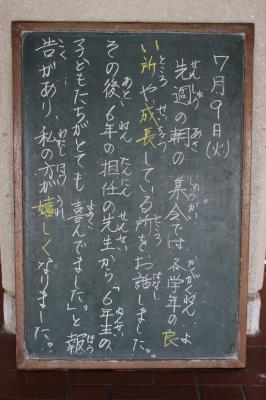 7月9日(火)
先週の朝の集会では、各学年の良
い所や成長している所をお話しました。
その後、6年の担任の先生から「6年生の
子どもたちがとても喜んでました。」と報
告があり、私の方が嬉しくなりました。